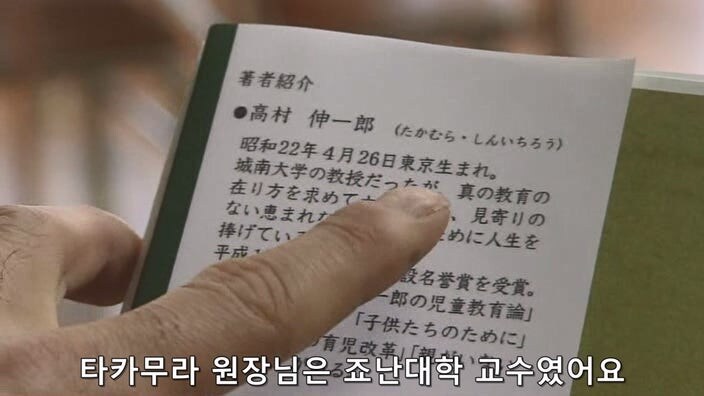 著者紹介
●高村 伸一郎 (たかむら・しんいちろう)
昭和22年4月26日東京生まれ。
城南大学の教授だったが、真の教育の
在り方を求めて 、見寄りの
ない恵まれな ために人生を
捧げている
平成 設名誉賞を受賞。
一郎の児童教育論」
「子供たちのために」
の育児改革」「親が
타카무라 원장님은 죠난대학 교수였어요